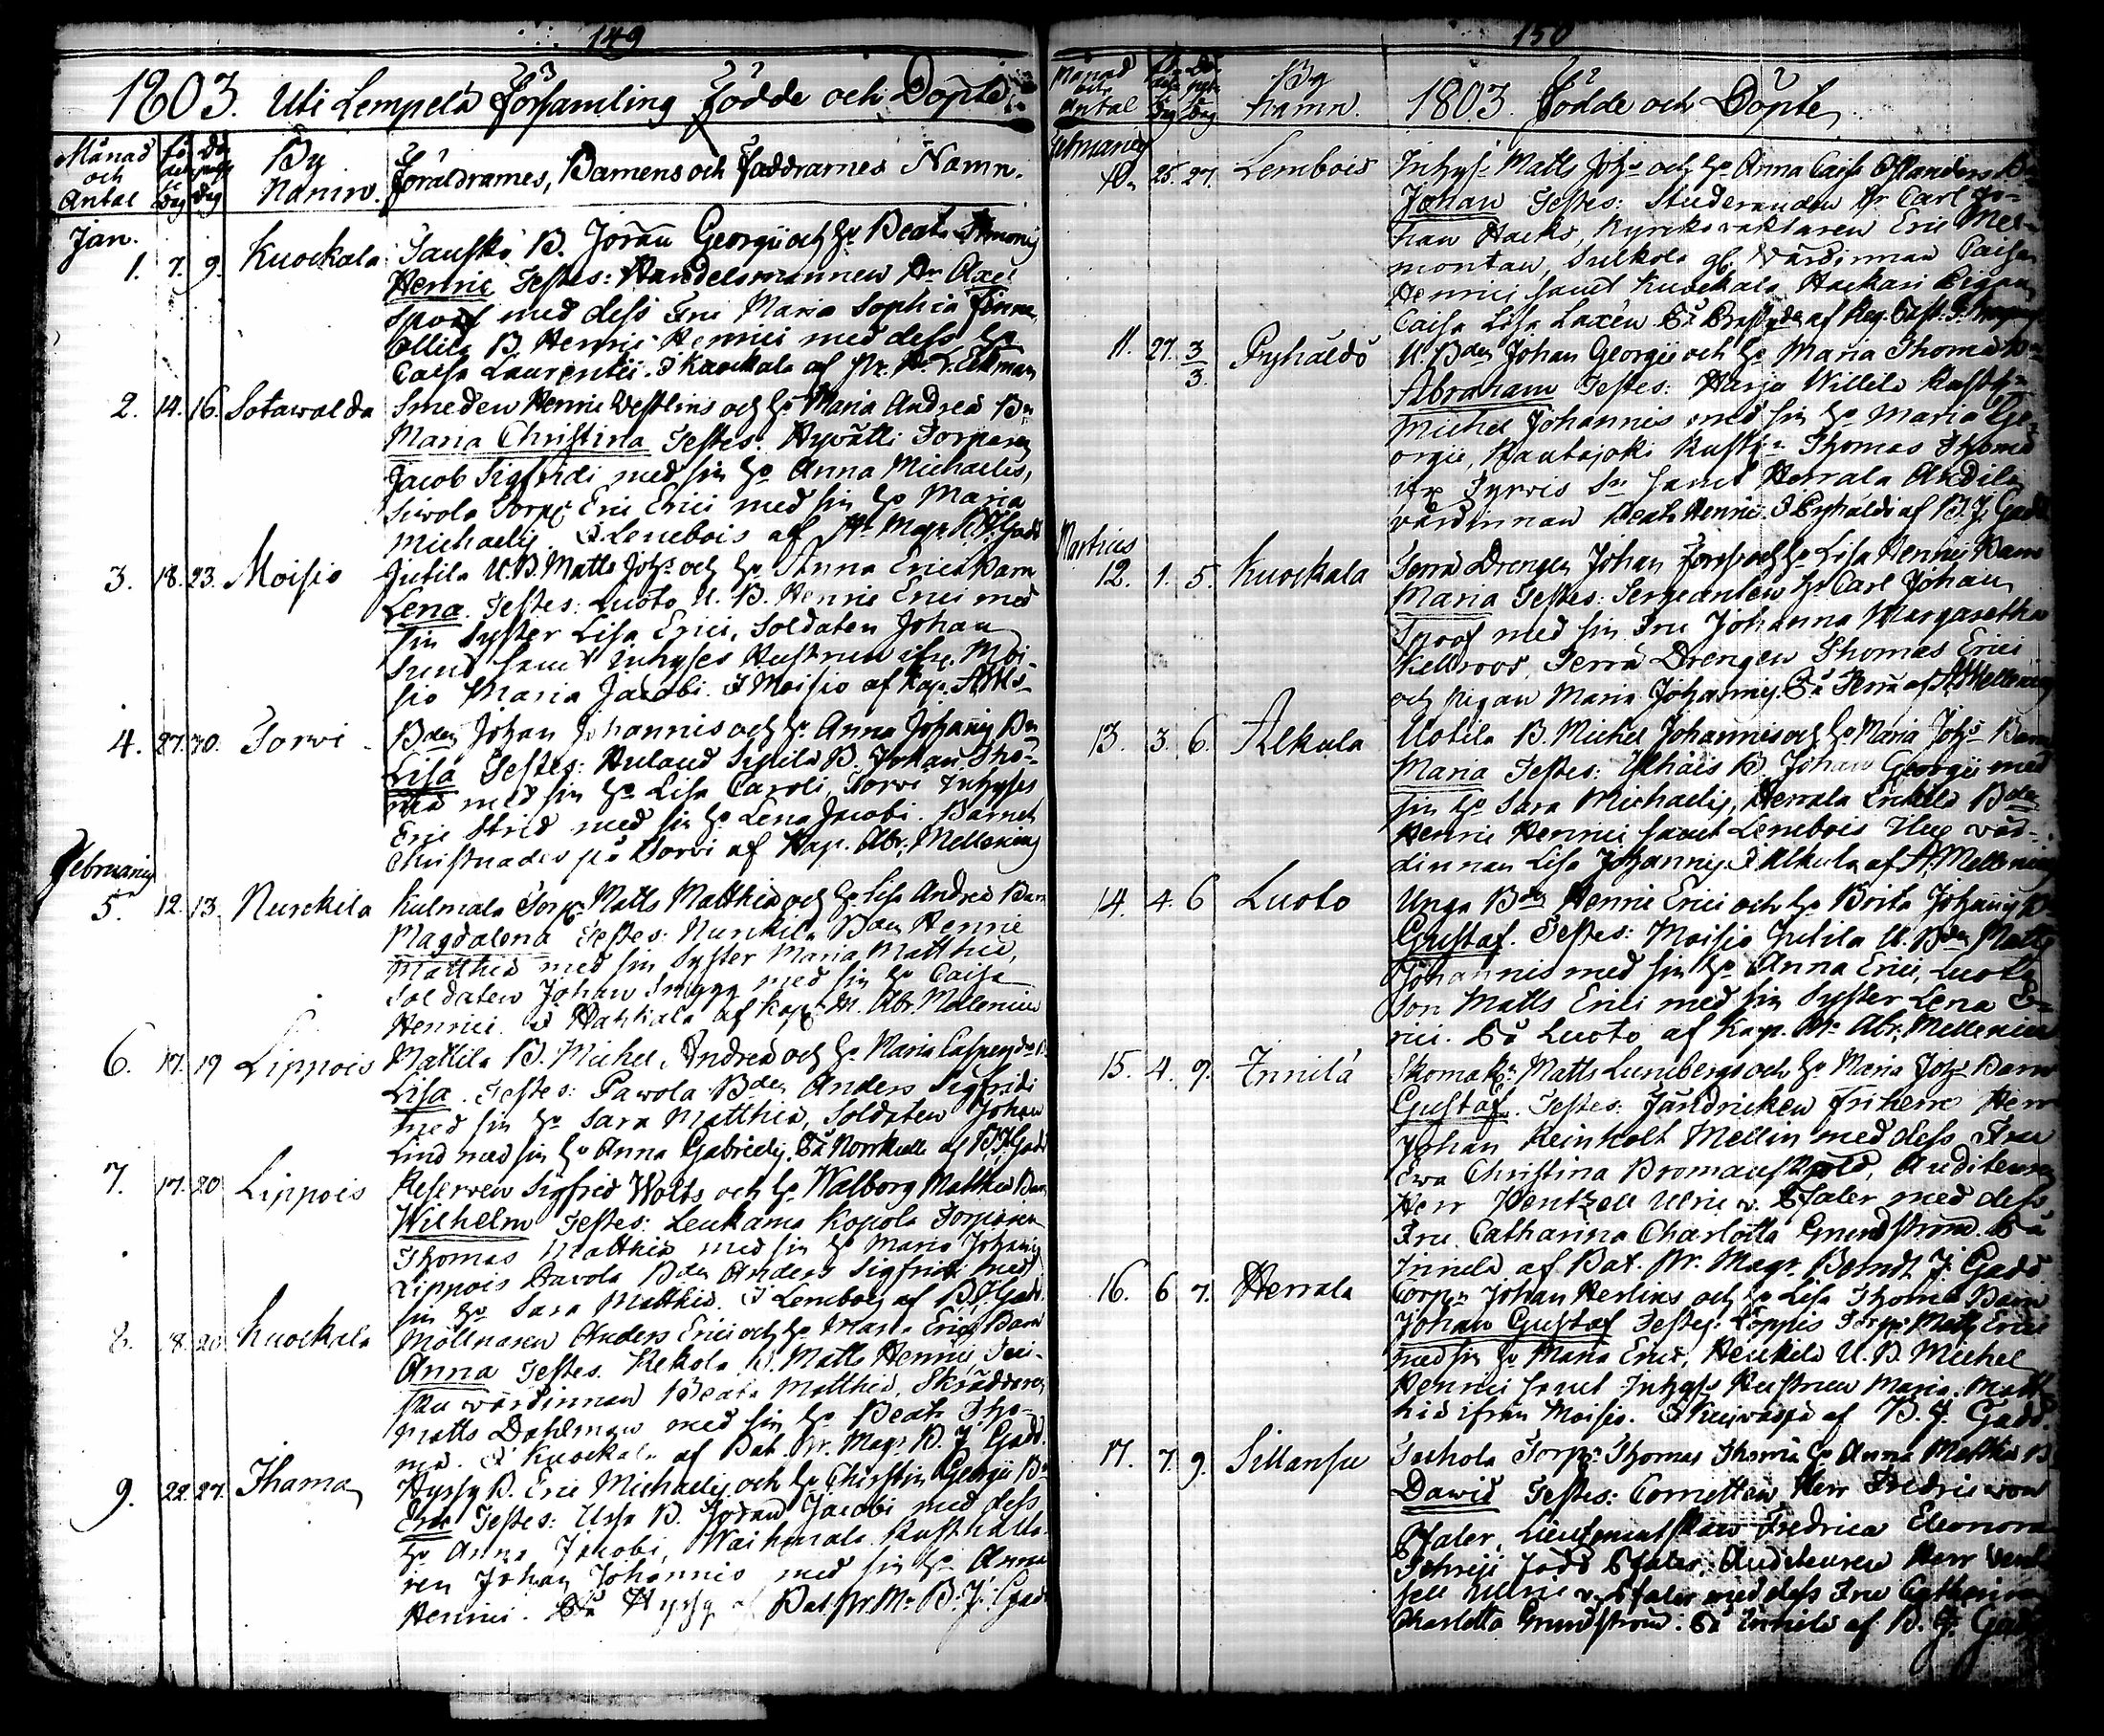 149
1803. Uti Lempelä Församling Födde och Döpte
Månad och Antal födde Dag döpte Dag By Namn. Föräldrarnes, Barnens och Faddrarnes Namn.
Jan.
1. 7. 9. Kuockala B. Jöran Georgii och H: Beata Simonis
Henric Testes: Handelsmannen Hr Axel
Spoof med dess Fru Maria Sophia
Ollila B. Henric Henrici med dess H:
Caisa Laurentii. I Kuockala af
2. 14. 16. Sotawalda Smeden Henric Westlins och H: Maria Andreæ Bn
Maria Christina Testes: Hyvätti Torparen
Jacob Sigfridi med sin H: Anna Michaelis,
Siwola Torp: Eric Erici med sin H: Maria
Michaelis. I Lembois af Hr Mag: B. J. Gadd
3. 18. 23. Moisio Jutila U. B. Matts Joh: och H: Anna Erici Barn
Lena. Testes: Luoto U. B. Henric Erici med
sin Syster Lisa Erici, Soldaten Johan
Sund samt Inhyses Hustrun ifr. Moi-
sio Maria Jacobi. I Moisio af Kap.
4. 27. 30. Sorvi Bden Johan Johannis och H: Anna Johannis Bn
Lisa Testes: Hulaud B. Johan Tho-
mæ med sin H: Lisa Caroli, Sorvi Inhyses
Eric Strid med sin H: Lena Jacobi. Barnet
Christnades på Sorvi af Kap. Abr. Mellenius
Februarius
5. 12. 13. Nurckila Kulmala Torp: Matts Matthiæ och H: Lisa Andreæ Barn
Magdalena Testes: Nurckila Bden Henric
Matthiæ med sin Syster Maria Matthiæ,
Soldaten Johan Snygg med sin H: Caisa
Henrici. I Hahkala af Kap: M. Abr. Mellenius
6. 17. 19 Lippois Mattila B. Michel Andreæ och H: Maria Casperi
Lisa. Testes: Pawola Bden Anders Sigfridi
med sin H: Sara Matthiæ, Soldaten Johan
Lind med sin H: Anna Gabrielis. På Norrkulle af B. J. Gadd
7. 17. 20 Lippois Reserven Sigfrid Wolts och H: Walborg Matthiæ Barn
Wilhelm Testes: Leukama Kopola Torparen
Thomas Matthiæ med sin H: Maria Johannis
Lippois Pavola Bden Anders Sigfridi med
sin H: Sara Matthiæ. I Lembois af B. J. Gadd
8. 18. 20 Kuockala Möllnaren Anders Erici och H: Maria Erici Barn
Anna Testes. Kekola B. Matts Henrici,
wärdinnan Beata Matthiæ, Skräddaren
Matts Dahlman med sin H: Beata Tho-
mæ. I Kuockala af Bat. Pr. Mag: B. J. Gadd
9. 22. 27. Ihama Hyssy B. Eric Michaelis och H: Christin Georgii Bn
Eric Testes: Ussa B. Jöran Jacobi med dess
H: Anna Jacobi, Waihmala Rusthålla-
ren Johan Johannis med sin H: Anna
Henrici. På Hyssy af Bat Pr. M: B. J. Gadd
150
Månad och Antal Dag Dag By Namn. 1803. Födde och Döpte
Februarius
10. 25. 27. Lembois Inhys: Matts Joh: och H: Anna Caisa Ollanders Bn
Johan Testes: Studeranden Hr Carl Jo-
han Hacks, Kyrkovaktaren Eric Mel-
montan, Sulkola gl. Värdinnan Caisa
Henrici samt Kuockala Hackari Pigan
Caisa Lisa Laxén
11. 27. 3/3. Pyhäldö U. Bden Johan Georgii och H: Maria Thomæ Bn
Abraham Testes: Harja Willilä Rusth:n
Michel Johannis med sin H: Maria Ge-
orgii, Rautajoki Rusth:n Thomas Thomæ
ifr. Tyrvis Sn samt Herrala Andila
värdinnan Beata Henrici. I Pyhäldö af B. J. Gadd
Martius
12. 1. 5. Kuockala Drengen Johan och H: Lisa Henrici Barn
Maria Testes: Sergeanten Hr Carl Johan
Spoof med sin Fru Johanna Margaretha
Hellroos, Drengen Thomas Erici
och Pigan Maria Johannis. På af A. Mellenius
13. 3. 6. Alkula Uotila B. Michel Johannis och H: Maria Joh: Barn
Maria Testes: B. Johan Georgii med
sin H: Sara Michaelis, Herrala Erickilä Bden
Henric Henrici samt Lembois Uue vär-
dinnan Lisa Johannis. I Alkula af A. Mellenius
14. 4. 6 Luoto Unga Bden Henric Erici och H: Brita Johannis B
Gustaf. Testes: Moisio Jutila U. Bden Matts
Johannis med sin H: Anna Erici, Luoto
Son Matts Erici med sin Syster Lena E-
rici. På Luoto af Kap. Mr Abr: Mellenius
15. 4. 9. Innilä Skomak:n Matts Lundbergs och H: Maria Joh: Barn
Gustaf. Testes: Fändricken Friherre Herr
Johan Reinholt Mellin med dess Fru
Ewa Christina Bromansköld, Auditeuren
Herr Wentzell Ulric v. Pfaler med dess
Fru Catharina Charlotta Grundström. På
Innilä af Bat. Pr. Mag: Berndt J. Gadd.
16. 6 7. Herrala Corp:n Johan Herlins och H: Lisa Thomæ Barn
Johan Gustaf Testes: Loppis Torp: Matts Erici
med sin H: Maria Erici, Heickilä U. B. Michel
Henrici samt Inhyses Hustrun Maria Matt-
hiæ ifrån Moisio. I af B. J. Gadd.
17. 7. 9. Sillansu Torp:n Thomas Thomæ H: Anna Matthiæ B
Dawid Testes: Cornetten Herr Fredric von
Pfaler, Lieutenantskan Fredrica Eleonora
född Pfaler. Auditeuren Herr Went-
sell Ulric v. Pfaler med dess Fru Catharina
Charlotta Grundström. På Innilä af B. J. Gadd